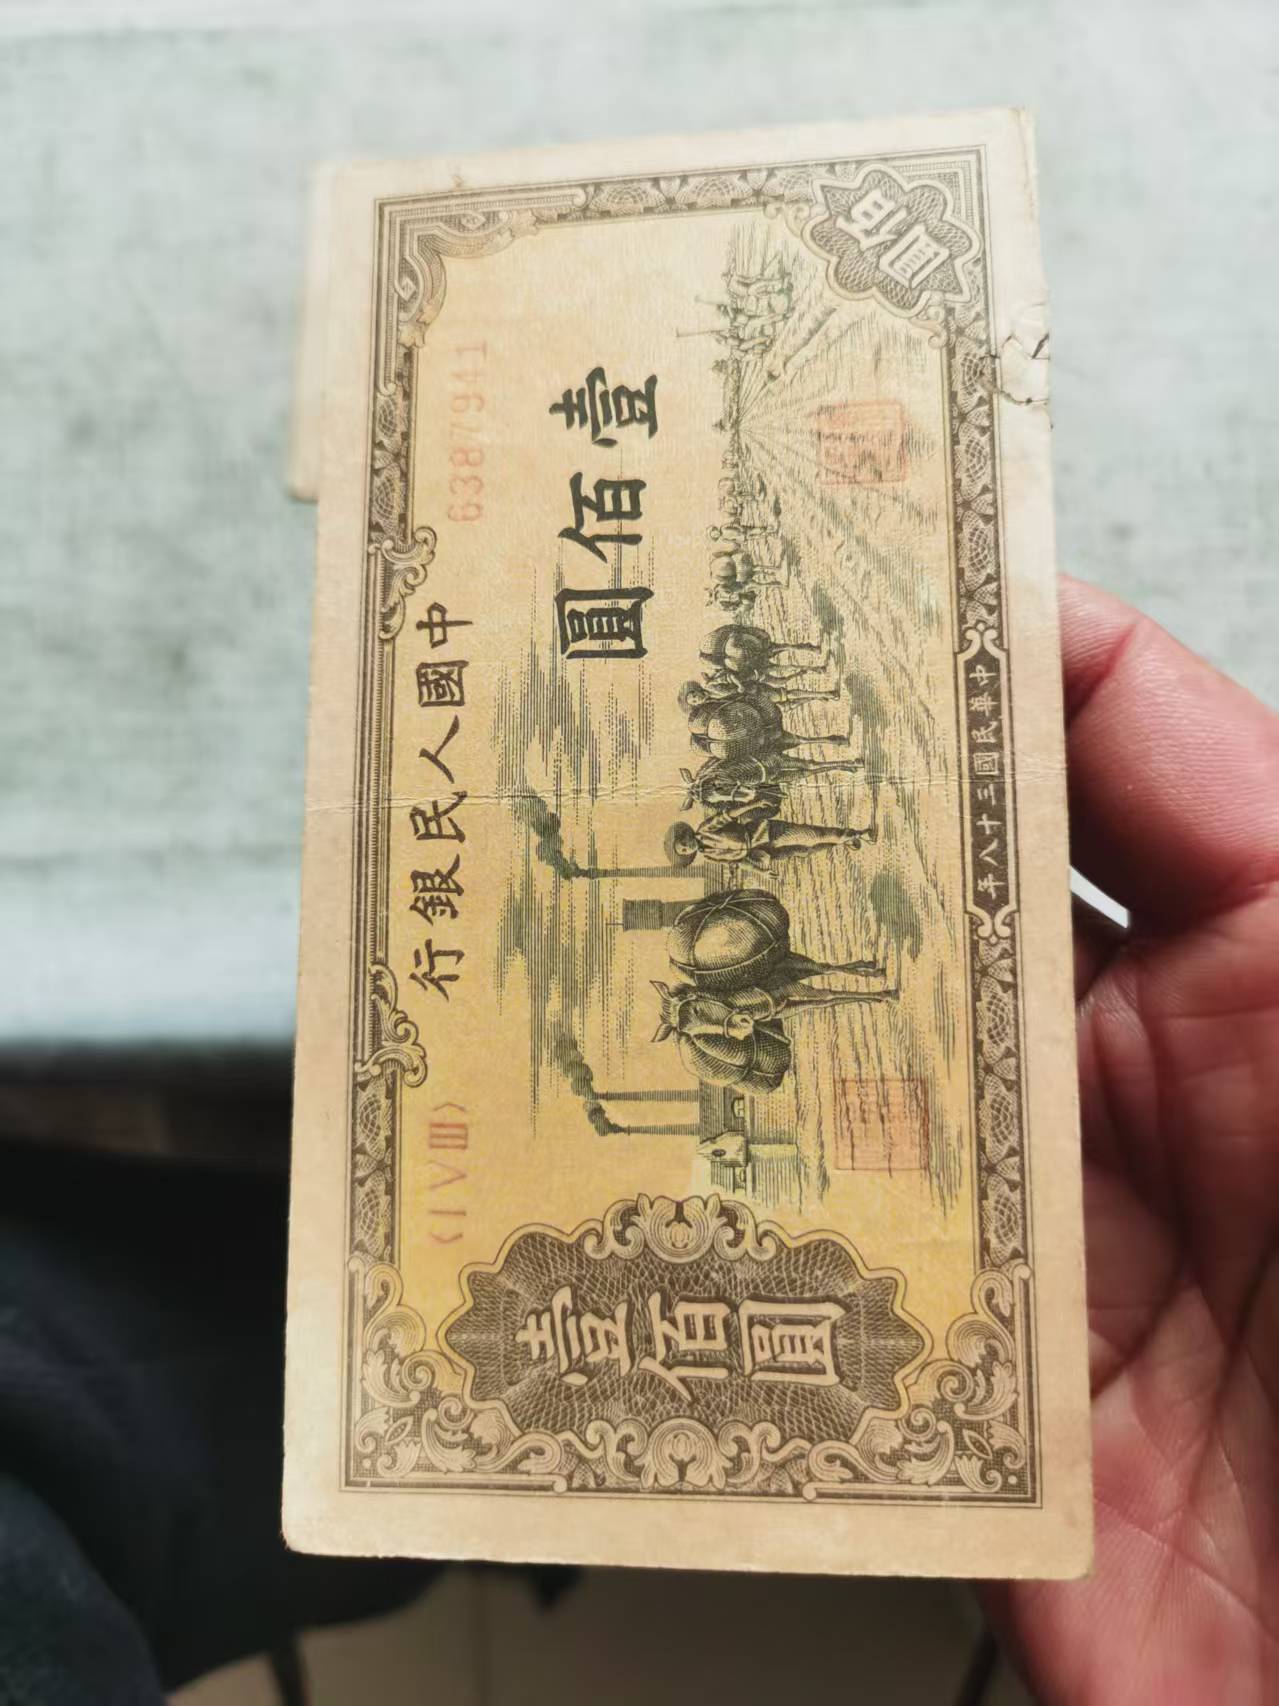 中國人民銀行
〈ⅠⅤⅢ〉
6387941
壹佰圓
壹佰圓
佰圓
中華民國三十八年